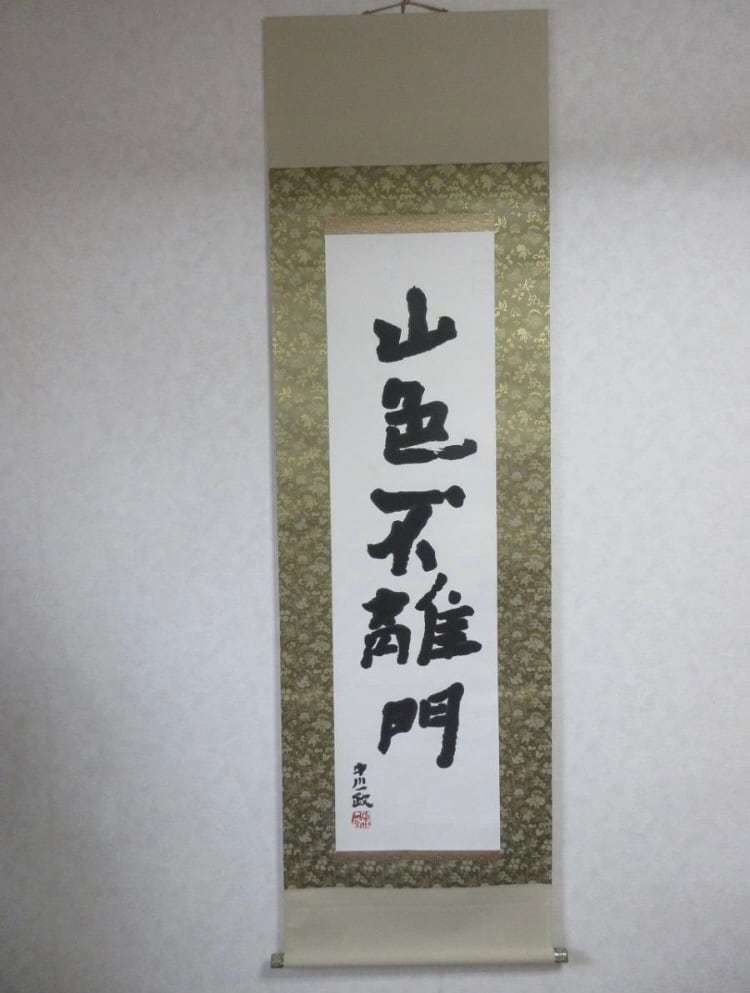 山色不離門
中川一政